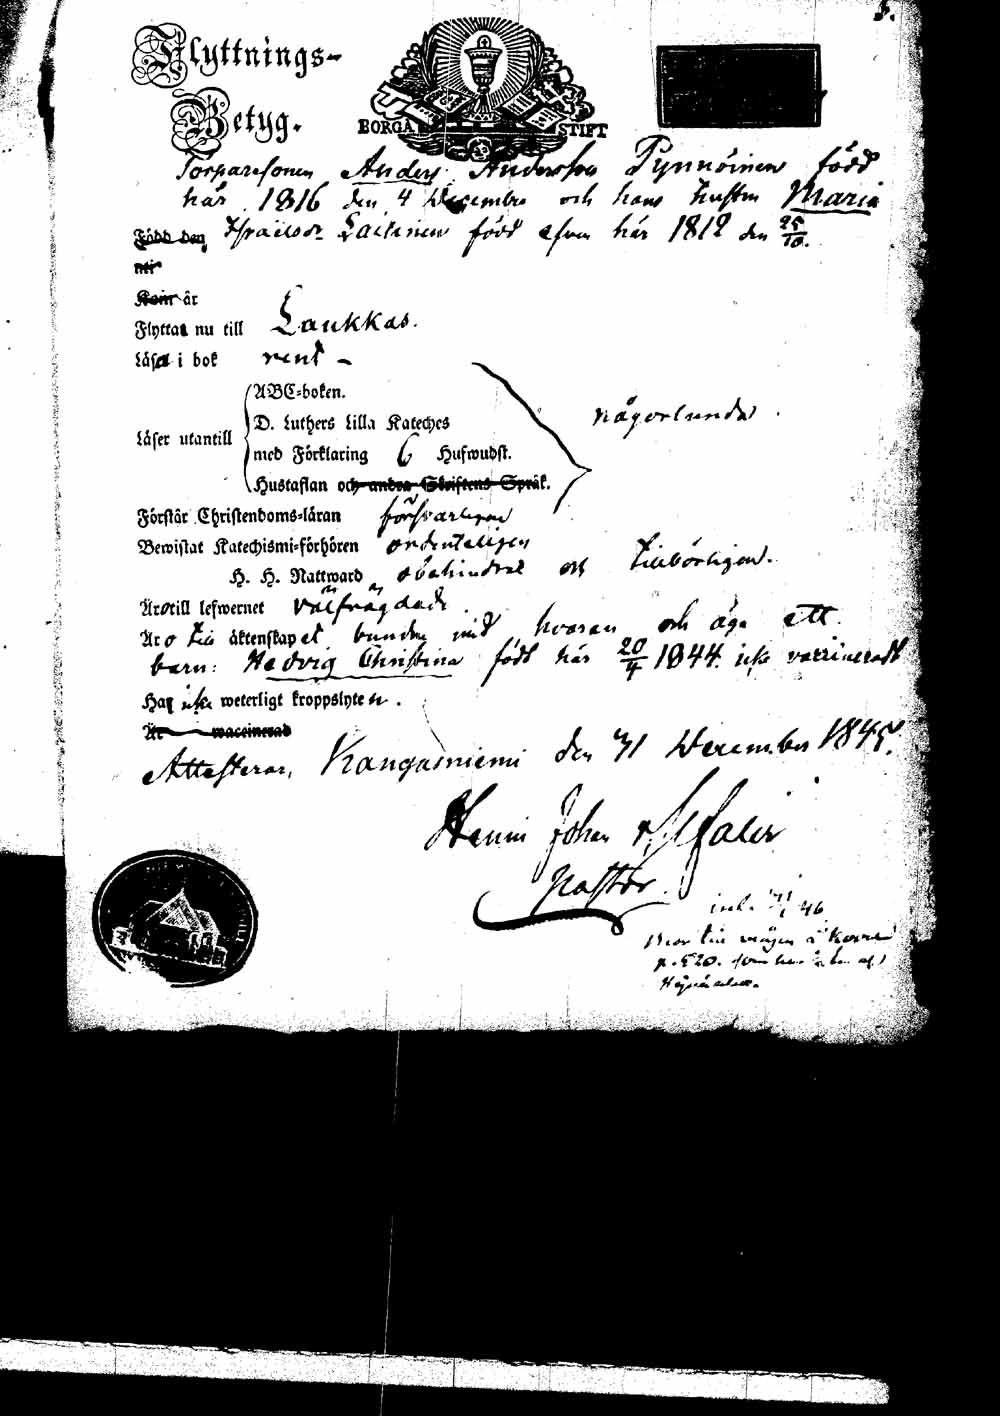 5.
Flyttnings-
Betyg.
BORGÅ STIFT
Torparesonen Anders Andersson Pynnöinen född
här 1816 den 4 Decembr och hans hustru Maria
Född den Israelsdr Laitinen född äfven här 1812 den 25/10.
Kom år
Flyttat nu till Laukkas.
Läser i bok rent –
ABC-boken.
D. Luthers Lilla Kateches
Läser utantill
med Förklaring 6 Hufwudst.
någorlunda.
Hustaflan och andra Skriftens Språk.
Förstår Christendoms-läran försvarligen
Bewistat Katechismi-förhören ordenteligen
H. H. Nattward obehindrat och tillbörligen.
Äro till lefwernet välfrägdade
Äro till äktenskapet bundne med hvaran och äga ett
barn: Hedvig Christina född här 20/4 1844. icke vaccineradt
Har icke weterligt kroppslyten.
Är waccinerad
Attesterar, Kangasniemi den 31 December 1845.
Johan
Pastor.
46
p. 520.